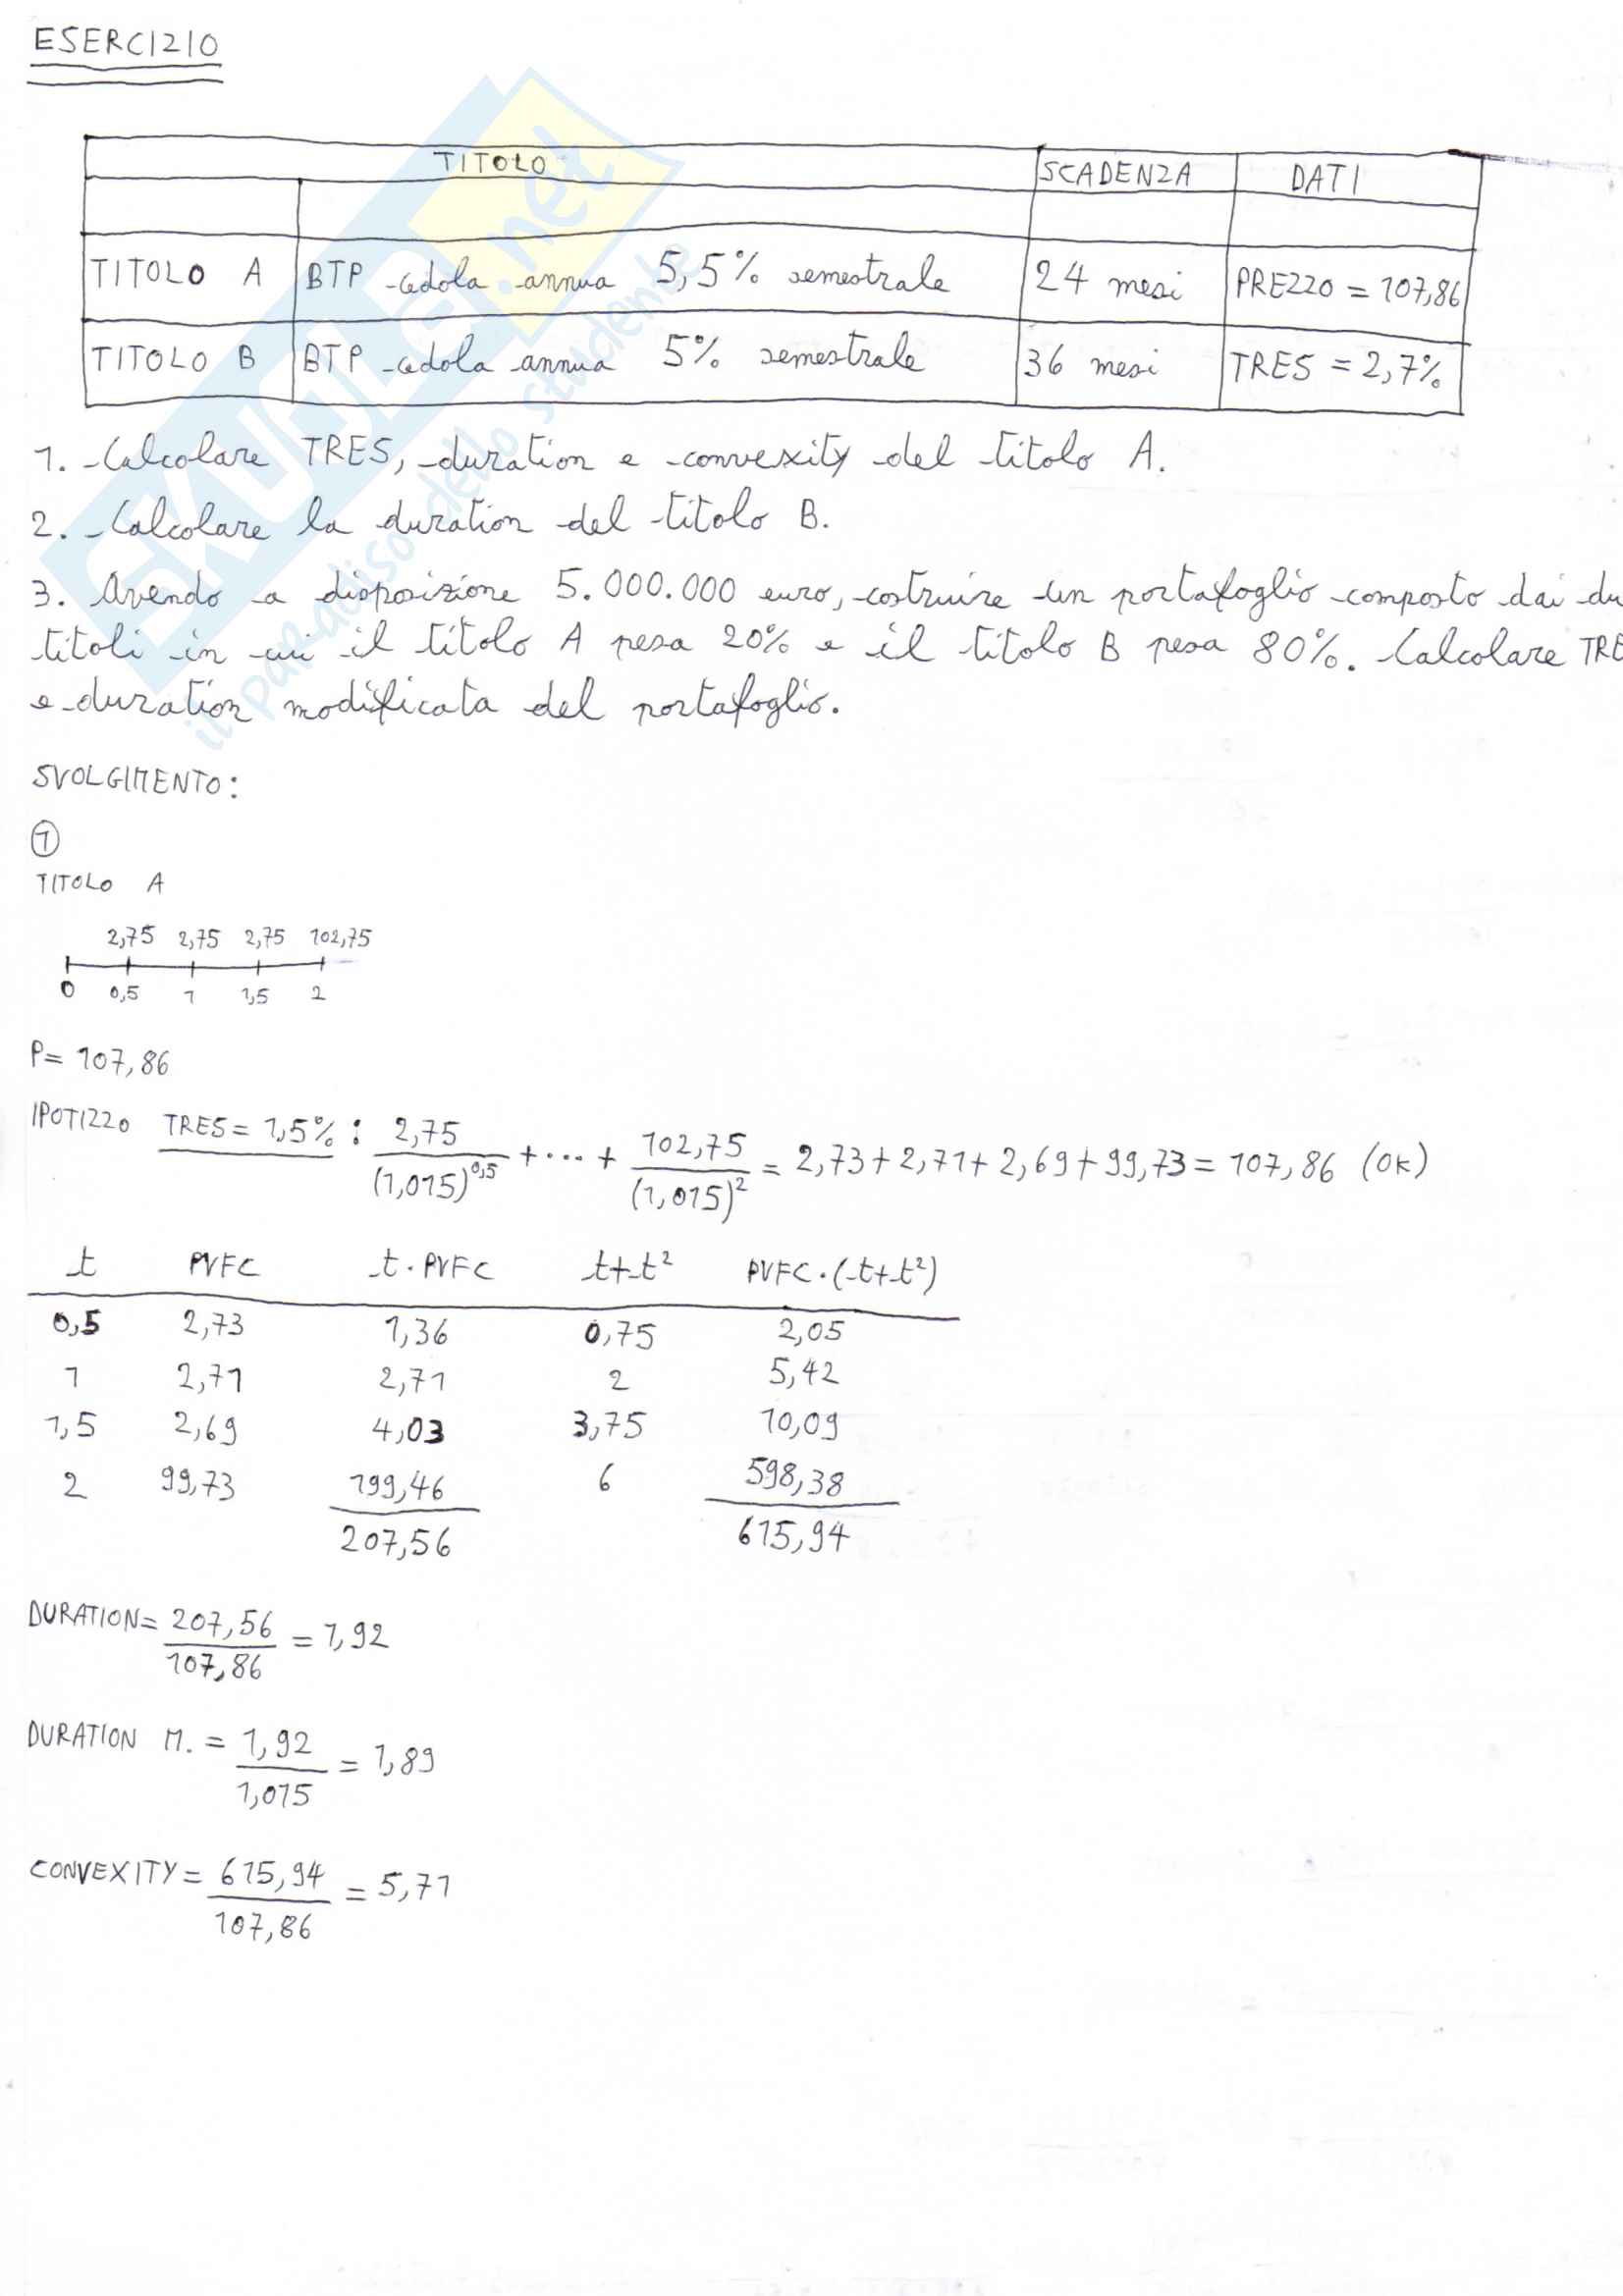 ESERCIZIO
TITOLO SCADENZA DATI
TITOLO A BTP cedola annua 5,5% semestrale 24 mesi PREZZO = 107,86
TITOLO B BTP cedola annua 5% semestrale 36 mesi TRES = 2,7%
1. Calcolare TRES, duration e convexity del titolo A.
2. Calcolare la duration del titolo B.
3. Avendo a disposizione 5.000.000 euro, costruire un portafoglio composto dai du
titoli in cui il titolo A pesa 20% e il titolo B pesa 80%. Calcolare TRE
e duration modificata del portafoglio.
SVOLGIMENTO:
1
TITOLO A
2,75 2,75 2,75 102,75
0 0,5 1 1,5 2
P= 107,86
IPOTIZZO TRES= 1,5% : 2,75/(1,015)^0,5 + ... + 102,75/(1,015)^2 = 2,73+2,71+2,69+99,73= 107,86 (OK)
t PVFC t·PVFC t+t² PVFC·(t+t²)
0,5 2,73 1,36 0,75 2,05
1 2,71 2,71 2 5,42
1,5 2,69 4,03 3,75 10,09
2 99,73 199,46 6 598,38
207,56 615,94
DURATION= 207,56/107,86 = 1,92
DURATION M. = 1,92/1,015 = 1,89
CONVEXITY= 615,94/107,86 = 5,71
SKUOLA.net
il paradiso dello studente